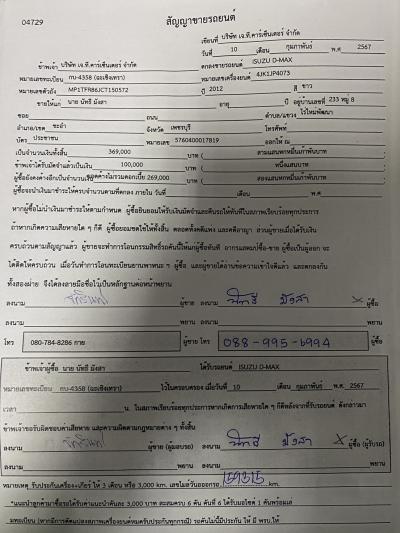 04729
สัญญาขายรถยนต์
เขียนที่ บริษัท เจ.ที.คาร์เซ็นเตอร์ จำกัด
วันที่ 10 เดือน กุมภาพันธ์ พ.ศ. 2567
ข้าพเจ้า บริษัท เจ.ที.คาร์เซ็นเตอร์ จำกัด ตกลงขายรถยนต์ ISUZU D-MAX
หมายเลขทะเบียน กบ-4358 (ฉะเชิงเทรา) หมายเลขเครื่องยนต์ 4JK1JP4073
หมายเลขตัวถัง MP1TFR86JCT150572 ปี 2012 สี ขาว
ขายให้แก่ นาย นัทธี มังสา อายุ ปี อยู่บ้านเลขที่ 233 หมู่ 8
ซอย ถนน ตำบล/แขวง ไร่ใหม่พัฒนา
อำเภอ/เขต ชะอำ จังหวัด เพชรบุรี โทรศัพท์
บัตร ประชาชน หมายเลข 5760400017819 ออกให้ ณ
เป็นจำนวนเงินทั้งสิ้น 369,000 บาท ( สามแสนหกหมื่นเก้าพันบาท
ข้าพเจ้าได้รับมัดจำแล้วเป็นเงิน 100,000 บาท ( หนึ่งแสนบาท
ผู้ซื้อยังคงค้างอีกเป็นจำนวนเงิน 269,000 บาท ( สองแสนหกหมื่นเก้าพันบาท
ผู้ซื้อจะนำเงินมาชำระให้ครบถ้วนตามที่ตกลง ภายใน วันที่ เดือน พ.ศ.
หากผู้ซื้อไม่นำเงินมาชำระให้ตามกำหนด ผู้ซื้อยินยอมให้รับเงินมัดจำและคืนรถให้ทันทีในสภาพเรียบร้อยทุกประการ
ถ้าหากเกิดความเสียหายใด ๆ ก็ดี ผู้ซื้อยอมชดใช้ให้ทั้งสิ้น ตลอดทั้งคดีแพ่ง และคดีอาญา ส่วนผู้ขายเมื่อได้รับเงิน
ครบถ้วนตามสัญญาแล้ว ผู้ขายจะทำการโอนกรรมสิทธิ์รถคันนี้ให้แก่ผู้ซื้อทันที
ได้คิดให้ครบถ้วน เมื่อวันทำการโอนทะเบียนยานพาหนะ ฯ ผู้ซื้อ และผู้ขายได้อ่านข้อความเข้าใจดีแล้ว และตกลงกัน
ทั้งสองฝ่าย จึงได้ลงลายมือชื่อไว้เป็นหลักฐานต่อหน้าพยาน
ลงนาม ผู้ขาย ลงนาม นัทธี มังสา X ผู้ซื้อ
ลงนาม พยาน ลงนาม พยาน
โทร 080-784-8286 กาย ผู้ขาย โทร 088-995-6994 ผู้ซื้อ
ข้าพเจ้าผู้ซื้อ นาย นัทธี มังสา ได้รับรถยนต์ ISUZU D-MAX
หมายเลขทะเบียน กบ-4358 (ฉะเชิงเทรา) ไว้ในครอบครอง เมื่อวันที่ 10 เดือน กุมภาพันธ์ พ.ศ. 2567
เวลา น. ในสภาพเรียบร้อยทุกประการหากเกิดการเสียหายใด ๆ ก็ดีหลังจากที่รับรถยนต์ ดังกล่าวมา
ข้าพเจ้าขอรับผิดชอบค่าเสียหาย และความผิดตามกฎหมายต่าง ๆ ทั้งสิ้น
ลงนาม ผู้ขาย (ผู้มอบรถ) ลงนาม นัทธี มังสา X ผู้ซื้อ (ผู้รับรถ)
ลงนาม พยาน ลงนาม พยาน
หมายเหตุ รับประกันเครื่อง+เกียร์ ให้ 3 เดือน หรือ 3,000 กม. เลขไมล์วันออกรถ 159315 km.
*แนะนำลูกค้ามาซื้อรถได้รับค่าแนะนำคันละ 3,000 บาท สะสมครบ 6 คัน คันที่ 6 ได้รับมอไซค์ 1 คันพร้อมเล่